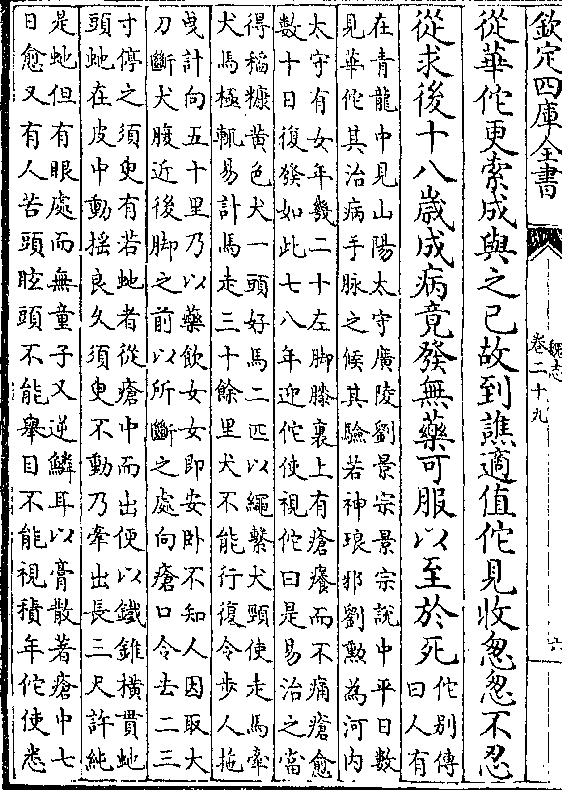 欽定四庫全書
魏志
卷二十九
六
從華佗更索成與之已故到譙適值佗見收怱怱不忍
從求後十八歲成病竟發無藥可服以至於死
佗别傳
曰人有
在青龍中見山陽太守廣陵劉景宗景宗說中平日數
見華佗其治病手脉之候其驗若神琅邪劉勲為河内
太守有女年幾二十左脚膝裏上有瘡癢而不痛瘡愈
數十日復發如此七八年迎佗使視佗曰是易治之當
得稻糠黄色犬一頭好馬二匹以繩繫犬頸使走馬牽
犬馬極輒易計馬走三十餘里犬不能行復令步人拖
曳計向五十里乃以藥飲女女即安卧不知人因取大
刀斷犬腹近後脚之前以所斷之處向瘡口令去二三
寸停之須臾有若虵者從瘡中而出便以鐵錐横貫虵
頭虵在皮中動揺良久須臾不動乃牽出長三尺許純
是虵但有眼處而無童子又逆鱗耳以膏散著瘡中七
日愈又有人苦頭眩頭不能舉目不能視積年佗使悉